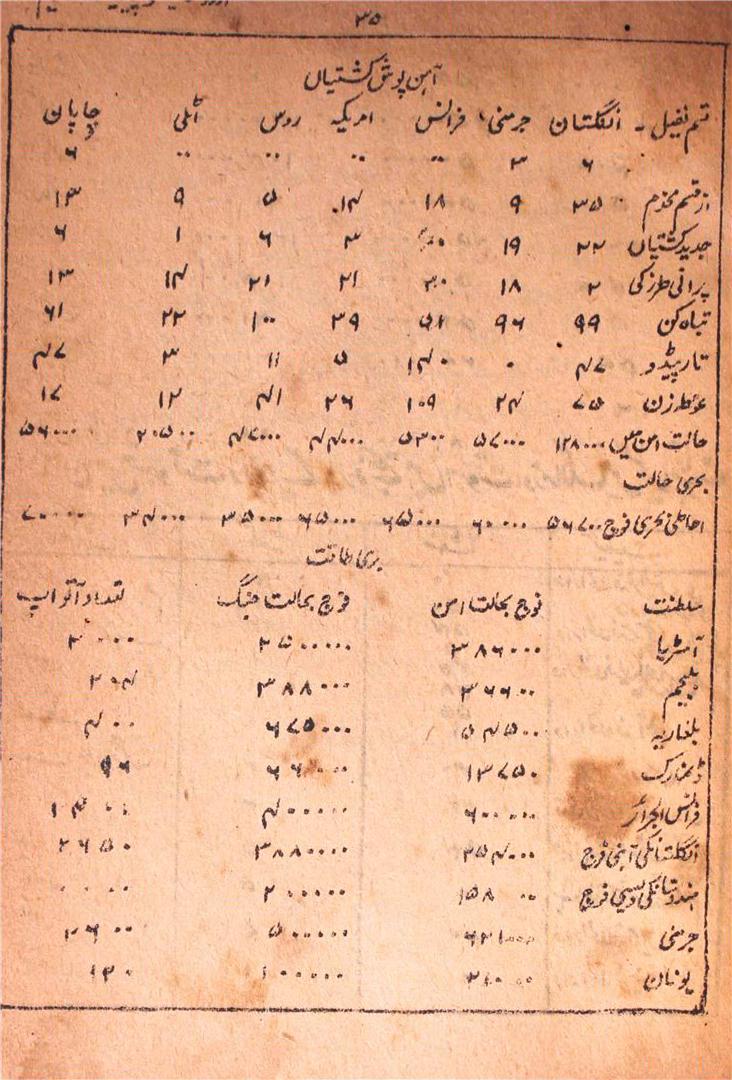 ۳۵
آہن پوش کشتیاں
قسم تفصیل۔ انگلستان جرمنی فرانس امریکہ روس اٹلی جاپان
۶ ۳ ۰۰ ۰۰ ۰۰ ۰۰ ۶
از قسم ۳۵ ۹ ۱۸ ۱۴ ۵ ۹ ۱۳
جدید کشتیاں ۲۲ ۱۹ ۳ ۶ ۱ ۶
پرانی طرز کی ۲ ۱۸ ۲۰ ۲۱ ۲۱ ۱۴ ۱۳
تباہ کن ۹۹ ۹۶ ۵۱ ۳۹ ۱۰۰ ۲۲ ۶۱
تارپیڈو ۷۴ ۰ ۱۴۰ ۵ ۱۱ ۳ ۷۴
غوطہ زن ۷۵ ۲۴ ۱۰۹ ۲۶ ۴۱ ۱۲ ۱۷
حالت امن میں ۱۲۸۰۰۰ ۵۷۰۰۰ ۵۳۰۰۰ ۴۴۰۰۰ ۴۷۰۰۰ ۲۰۵۰۰ ۵۶۰۰۰
بحری حالت
احاطی بحری فوج ۵۶۷۰۰ ۶۰۰۰۰ ۶۵۰۰۰ ۶۵۰۰۰ ۳۵۰۰۰ ۳۴۰۰۰ ۷۰۰۰۰
بری طاقت
سلطنت فوج بحالت امن فوج بحالت جنگ تعداد آتواپ
آسٹریا ۳۸۶۰۰۰ ۲۵۰۰۰۰۰ ۲۰۰۰
بلجیم ۳۶۶۰۰ ۳۸۸۰۰۰ ۲۰۴
بلغاریہ ۵۴۵۰۰ ۶۷۵۰۰۰ ۴۰۰
ڈنمارک ۱۳۷۵۰ ۶۶۰۰۰ ۹۶
فرانس الجزائر ۶۰۰۰۰۰ ۴۰۰۰۰۰۰
انگلستانکی آہنی فوج ۲۵۴۰۰۰ ۳۸۸۰۰۰۰ ۲۶۵۰
ہندوستانکی دیسی فوج ۱۵۸۰۰۰ ۲۰۰۰۰۰ ۰۰۰۰
جرمنی ۵۰۰۰۰۰۰
یونان ۱۰۰۰۰۰۰ ۱۳۰